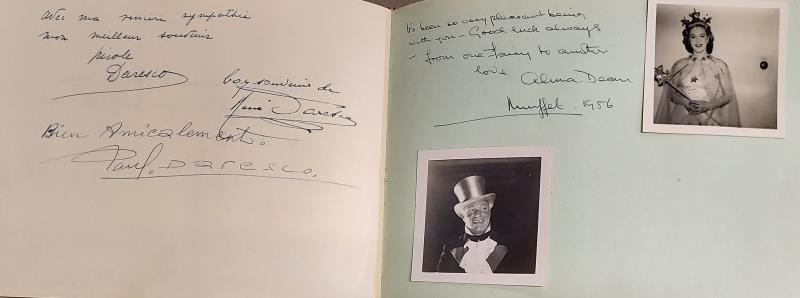 avec ma sincère sympathie
mon meilleur souvenir
Nicole
Daresco
bon souvenir de
René Daresco
Bien Amicalement.
Paul. Daresco.
It's been so very pleasant being
with you - Good luck always
- from one fairy to another
love Alma Dean
Muffet. 1956